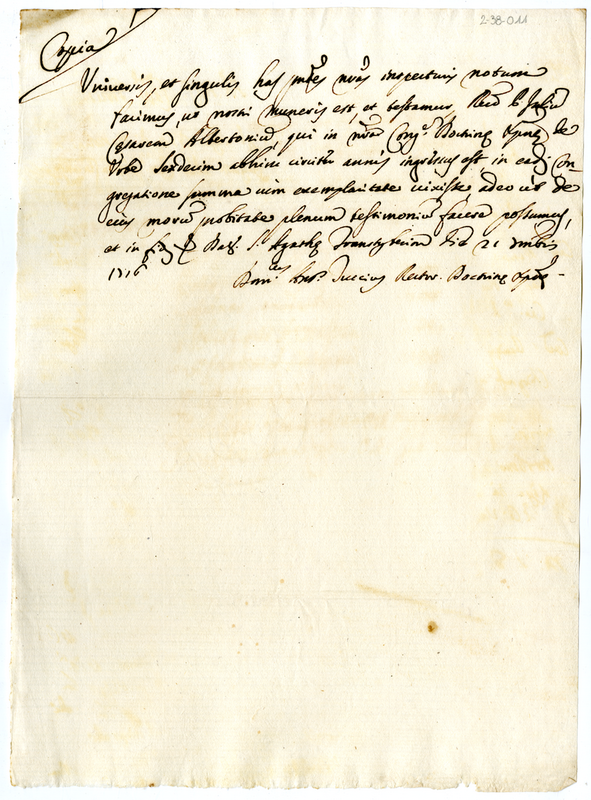 2-38-011
Copia
Universis, et singulis has pntes nras inspecturis notum
facimus, ut nostri muneris est, et testamur, Rend. D. Julium
Cesarem Albertonium, qui in nra Cong.e Doctrinę Xpnę de
Urbe sexdecim abhinc circiter annis ingressus est in ead. Con-
gregatione summa cum exemplaritate vixisse adeo ut de
eius morum probitate plenum testimonium facere possumus,
et in fidem Dat. S. Agathę Transtyberim die 21 Xmbris
1716
Dom.cus Ant.s Rector Doctrinę Xpnę